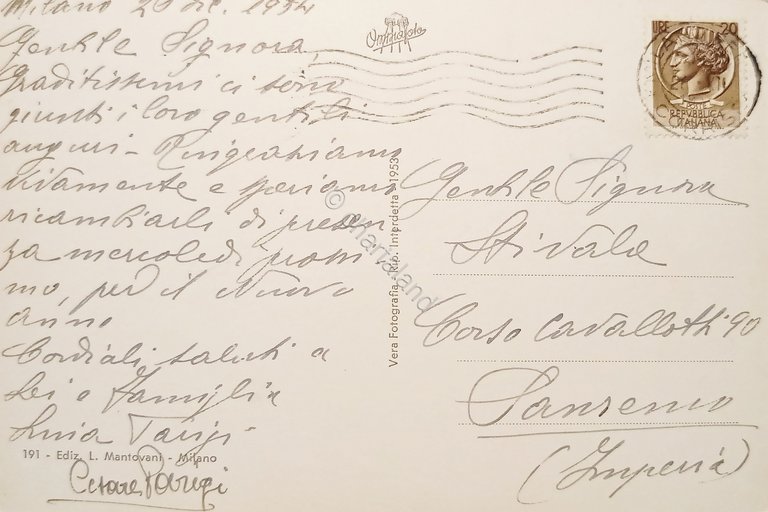 Milano 29 dic. 1954
Gentile Signora,
graditissimi ci sono
giunti i loro gentili
auguri - Ringraziamo
vivamente e speriamo
ricambiarli di presen
za mercoledì prossi
mo, per il Nuovo
Anno
Cordiali saluti a
Lei e Famiglia
Parigi
191 - Ediz. L. Mantovani - Milano
Cesare Parigi
Vera Fotografia - Rip. Interdetta - 1953
© chartaland
Ormafoto
LIRE 20
POSTE
REPVBBLICA
ITALIANA
Gentile Signora
Stivala
Corso Cavallotti 90
Sanremo
(Imperia)